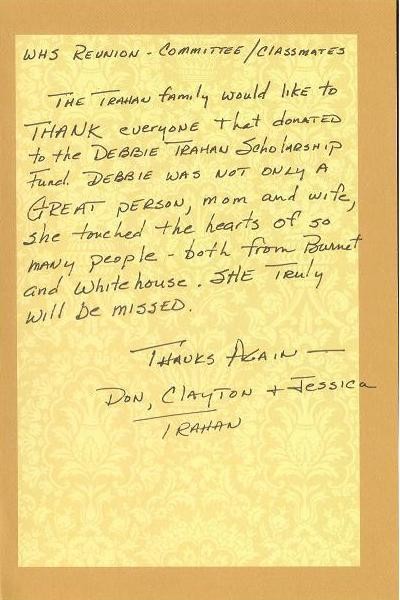 WHS REUNION - COMMITTEE/CLASSMATES
THE TRAHAN family would like to
THANK everyone that donated
to the DEBBIE TRAHAN Scholarship
Fund. DEBBIE WAS NOT ONLY A
GREAT PERSON, mom and wife,
she touched the hearts of so
many people - both from Burnet
and Whitehouse. SHE Truly
will be MISSED.
THANKS AGAIN —
DON, CLAYTON + Jessica
TRAHAN